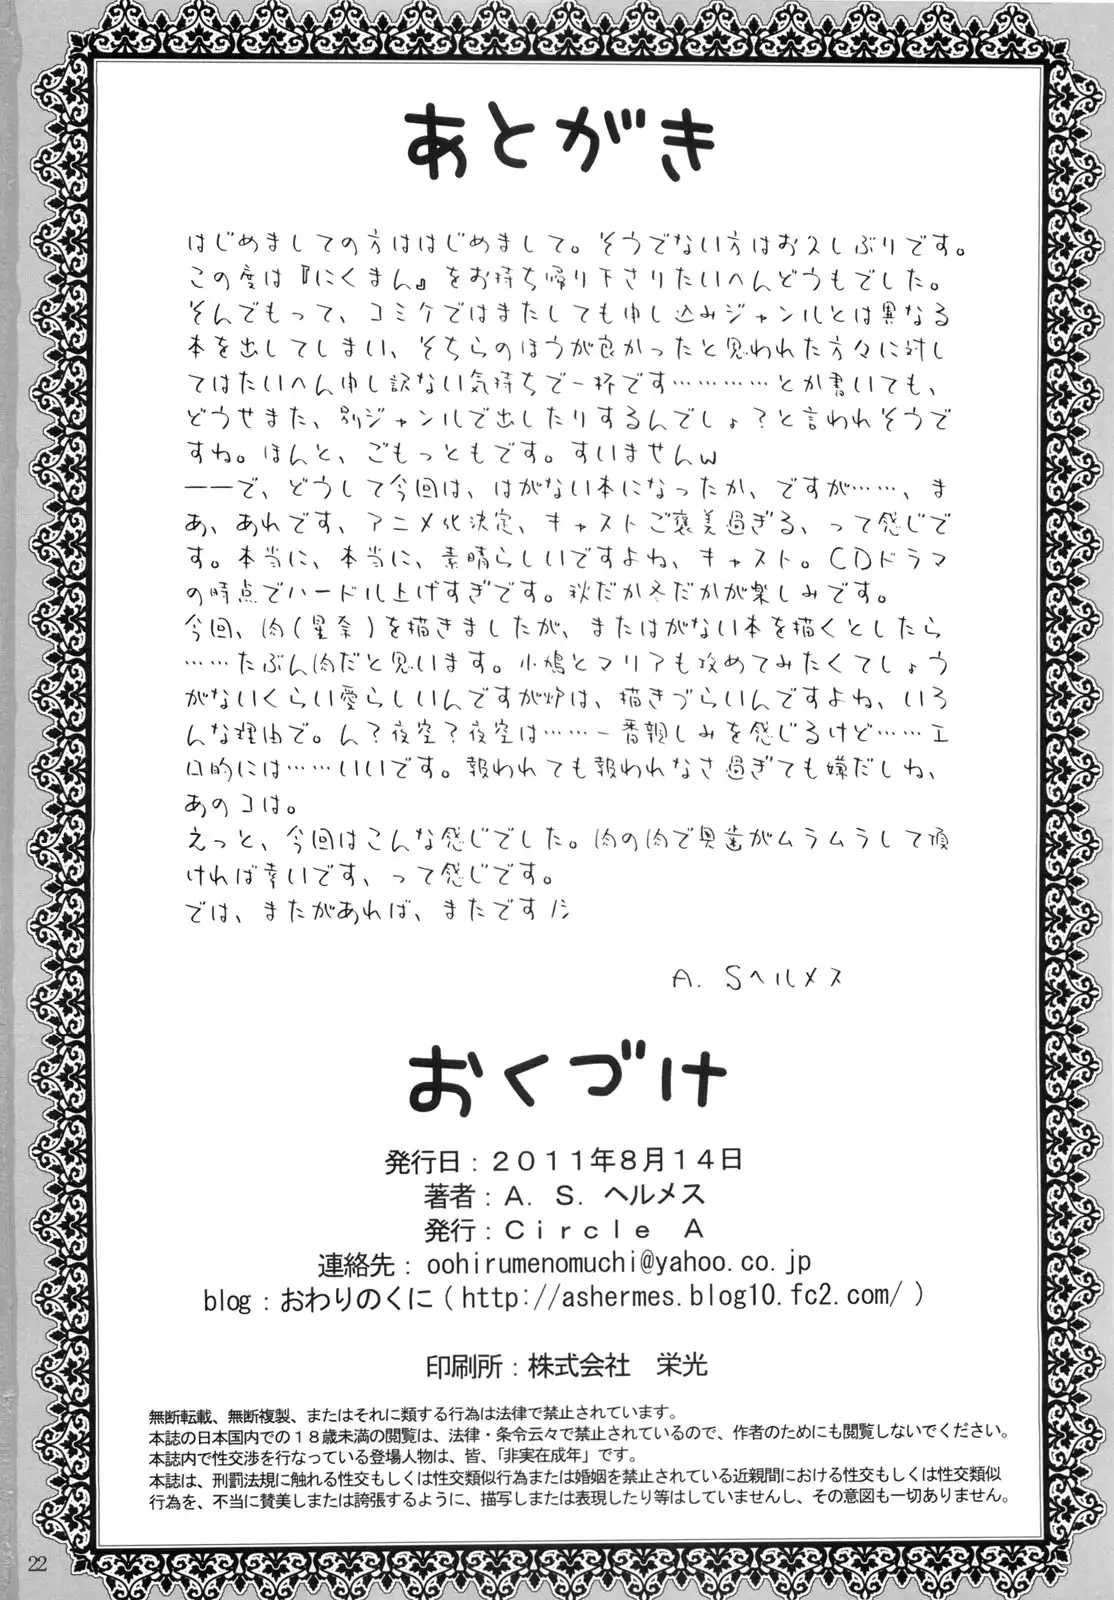 あとがき
はじめましての方ははじめまして。そうでない方はお久しぶりです。
この度は『にくまん』をお持ち帰り下さりたいへんどうもでした。
そんでもって、コミケではまたしても申し込みジャンルとは異なる
本を出してしまい、そちらのほうが良かったと思われた方々に対し
てはたいへん申し訳ない気持ちで一杯です…………とか書いても、
どうせまた、別ジャンルで出したりするんでしょ？と言われそうで
すね。ほんと、ごもっともです。すいませんｗ
――で、どうして今回は、はがない本になったか、ですが……、ま
あ、あれです、アニメ化決定、キャストご褒美過ぎる、って感じで
す。本当に、本当に、素晴らしいですよね、キャスト。ＣＤドラマ
の時点でハードル上げすぎです。秋だか冬だかが楽しみです。
今回、肉（星奈）を描きましたが、またはがない本を描くとしたら
……たぶん肉だと思います。小鳩とマリアも攻めてみたくてしょう
がないくらい愛らしいんですが炉は、描きづらいんですよね、いろ
んな理由で。ん？夜空？夜空は……一番親しみを感じるけど……エ
ロ的には……いいです。報われても報われなさ過ぎても嫌だしね、
あのコは。
えっと、今回はこんな感じでした。肉の肉で奥歯がムラムラして頂
ければ幸いです、って感じです。
では、またがあれば、またですﾉｼ
Ａ．Ｓヘルメス
おくづけ
発行日：２０１１年８月１４日
著者：Ａ．Ｓ．ヘルメス
発行：Ｃｉｒｃｌｅ　Ａ
連絡先：oohirumenomuchi@yahoo.co.jp
blog：おわりのくに（http://ashermes.blog10.fc2.com/）
印刷所：株式会社　栄光
無断転載、無断複製、またはそれに類する行為は法律で禁止されています。
本誌の日本国内での１８歳未満の閲覧は、法律・条令云々で禁止されているので、作者のためにも閲覧しないでください。
本誌内で性交渉を行なっている登場人物は、皆、「非実在成年」です。
本誌は、刑罰法規に触れる性交もしくは性交類似行為または婚姻を禁止されている近親間における性交もしくは性交類似
行為を、不当に賛美しまたは誇張するように、描写しまたは表現したり等はしていませんし、その意図も一切ありません。
22